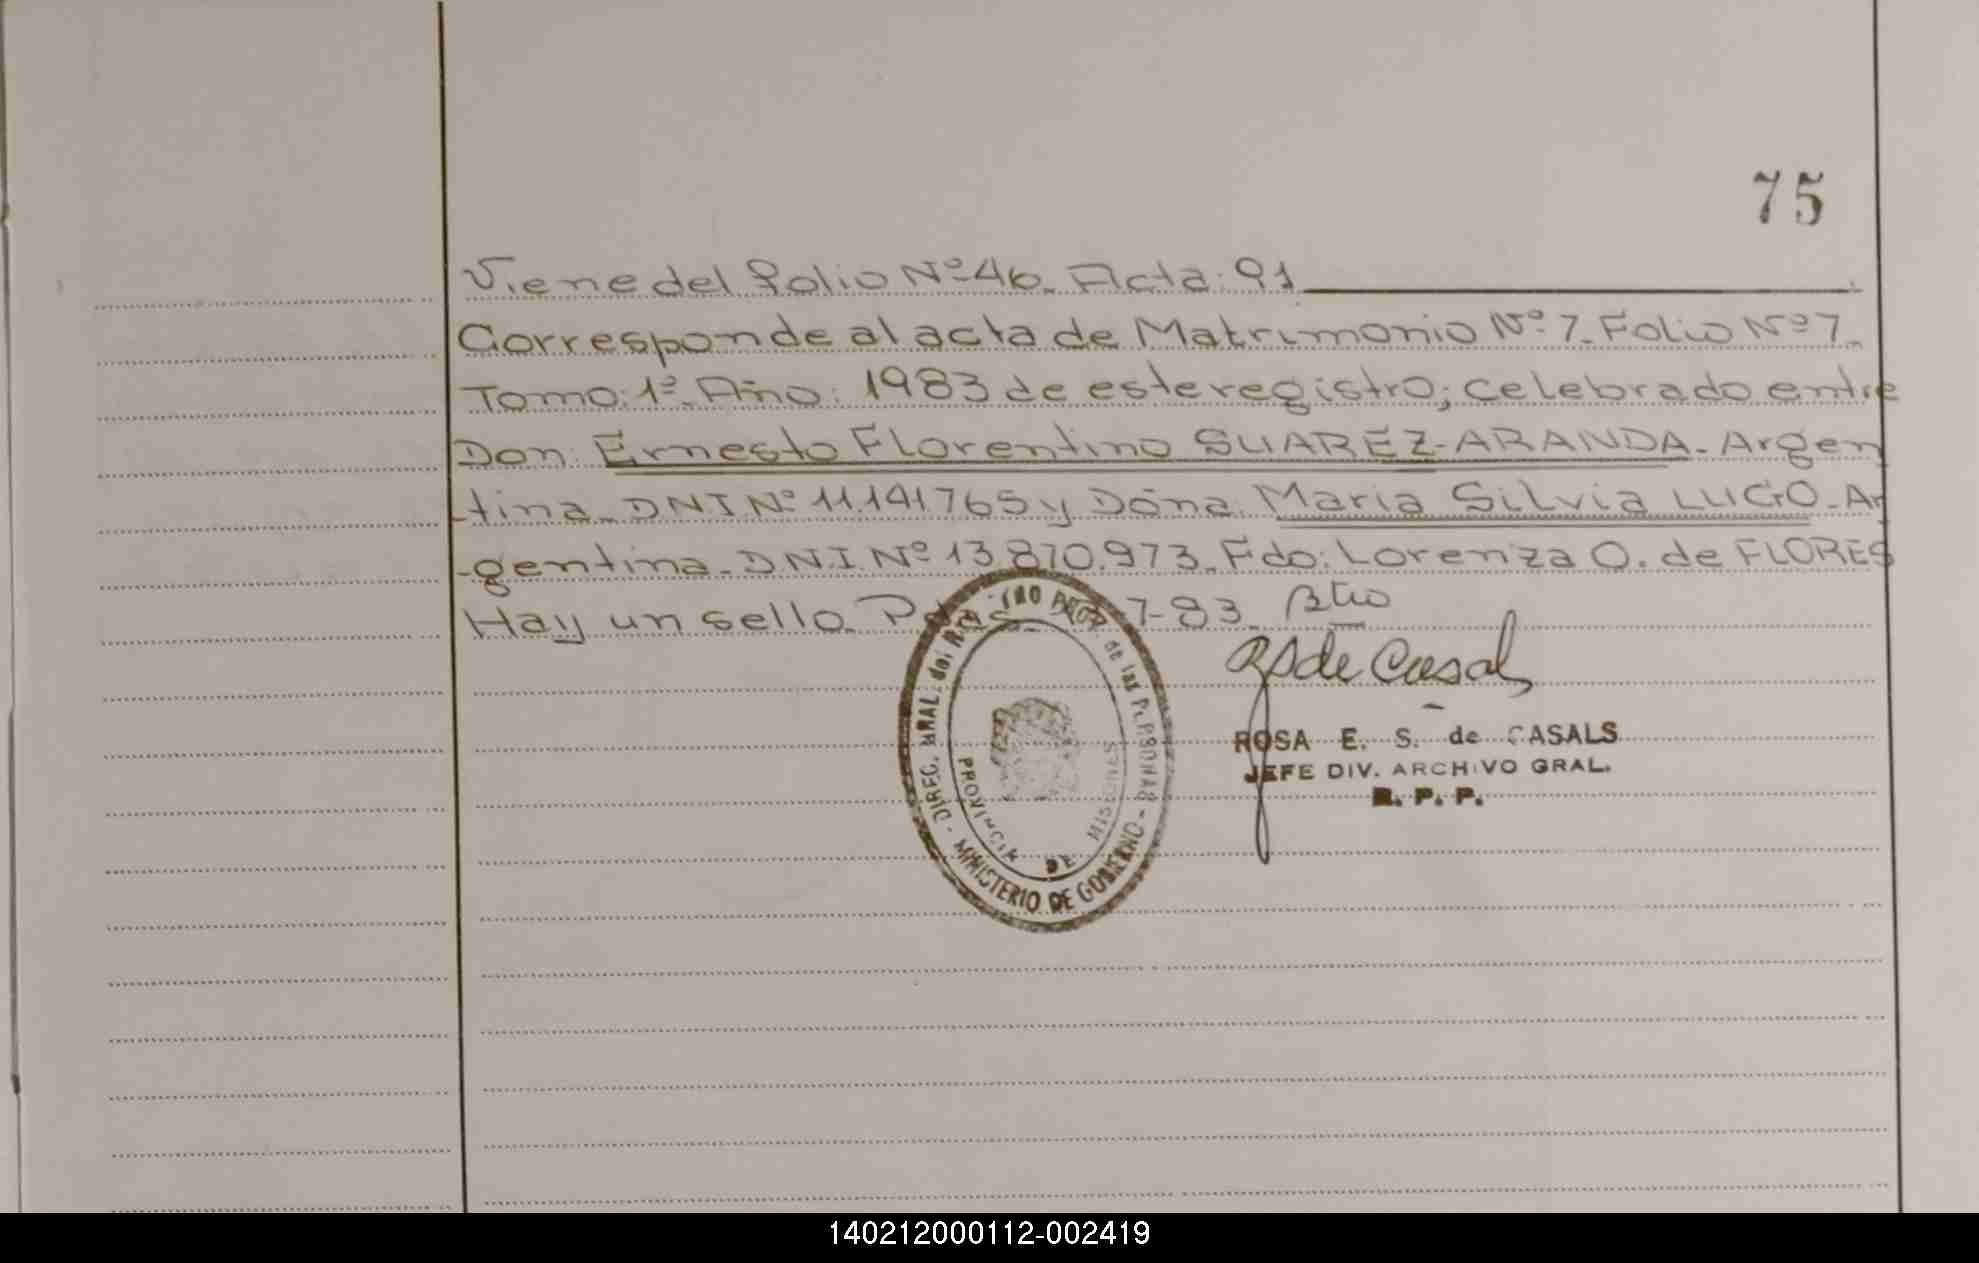 75
Viene del folio Nº 46. Acta: 91
Corresponde al acta de Matrimonio Nº 7. Folio Nº 7.
Tomo: 1º. Año: 1983 de este registro; celebrado entre
Don: Ernesto Florentino SUAREZ-ARANDA. Argen
-tina. DNI Nº 11.141.765 y Doña: Maria Silvia LUGO. Ar
-gentina. DNI. Nº 13.870.973. Fdo: Lorenza O. de FLORES
Hay un sello. 7-83.
DIREC. GRAL. del de las PERSONAS - MINISTERIO DE GOBIERNO -
PROVINCIA DE MISIONES
R S de Casals
ROSA E. S. de CASALS
JEFE DIV. ARCHIVO GRAL.
R. P. P.
140212000112-002419